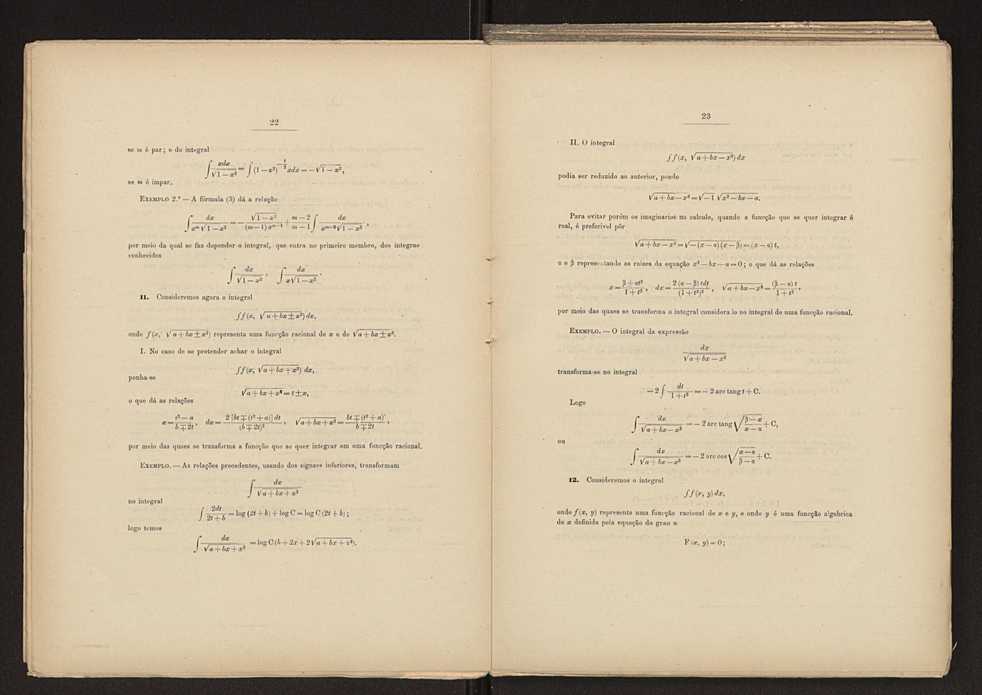 22
se m é par; e do integral
∫ xdx / √(1−x²) = ∫ (1−x²)^(−1/2) xdx = −√(1−x²),
se m é impar.
EXEMPLO 2.º — A fórmula (3) dá a relação
∫ dx / (x^m √(1−x²)) = − √(1−x²) / ((m−1) x^(m−1)) + (m−2)/(m−1) ∫ dx / (x^(m−2) √(1−x²)),
por meio da qual se faz depender o integral, que entra no primeiro membro, dos integraes
conhecidos
∫ dx / √(1−x²), ∫ dx / (x√(1−x²)).
11. Consideremos agora o integral
∫f (x, √(a+bx±x²) dx,
onde f (x, √(a+bx±x²) representa uma funcção racional de x e de √(a+bx±x²).
I. No caso de se pretender achar o integral
∫f (x, √(a+bx+x²) dx,
ponha-se
√(a+bx+x²) = t±x,
o que dá as relações
x = (t²−a)/(b∓2t), dx = 2 [bt∓(t²+a)] dt / (b∓2t)², √(a+bx+x²) = (bt∓(t²+a))/(b∓2t),
por meio das quaes se transforma a funcção que se quer integrar em uma funcção racional.
EXEMPLO. — As relações precedentes, usando dos signaes inferiores, transformam
∫ dx / √(a+bx+x²)
no integral
∫ 2dt / (2t+b) = log (2t+b) + log C = log C (2t+b);
logo temos
∫ dx / √(a+bx+x²) = log C (b+2x+2√(a+bx+x²)).
23
II. O integral
∫f (x, √(a+bx−x²) dx
podia ser reduzido ao anterior, pondo
√(a+bx−x²) = √−1 √(x²−bx−a).
Para evitar porém os imaginarios no calculo, quando a funcção que se quer integrar é
real, é preferivel pôr
√(a+bx−x²) = √(−(x−α)(x−β)) = (x−α) t,
α e β representando as raizes da equação x²−bx−a=0; o que dá as relações
x = (β+αt²)/(1+t²), dx = 2 (α−β) tdt / (1+t²)², √(a+bx−x²) = (β−α) t / (1+t²),
por meio das quaes se transforma o integral considerado no integral de uma funcção racional.
EXEMPLO. — O integral da expressão
dx / √(a+bx−x²)
transforma-se no integral
−2 ∫ dt / (1+t²) = −2 arc tang t + C.
Logo
∫ dx / √(a+bx−x²) = −2 arc tang √((β−x)/(x−α)) + C,
ou
∫ dx / √(a+bx−x²) = −2 arc cos √((x−α)/(β−α)) + C.
12. Consideremos o integral
∫f (x, y) dx,
onde f (x, y) representa uma funcção racional de x e y, e onde y é uma funcção algebrica
de x definida pela equação do grau n
F (x, y) = 0;